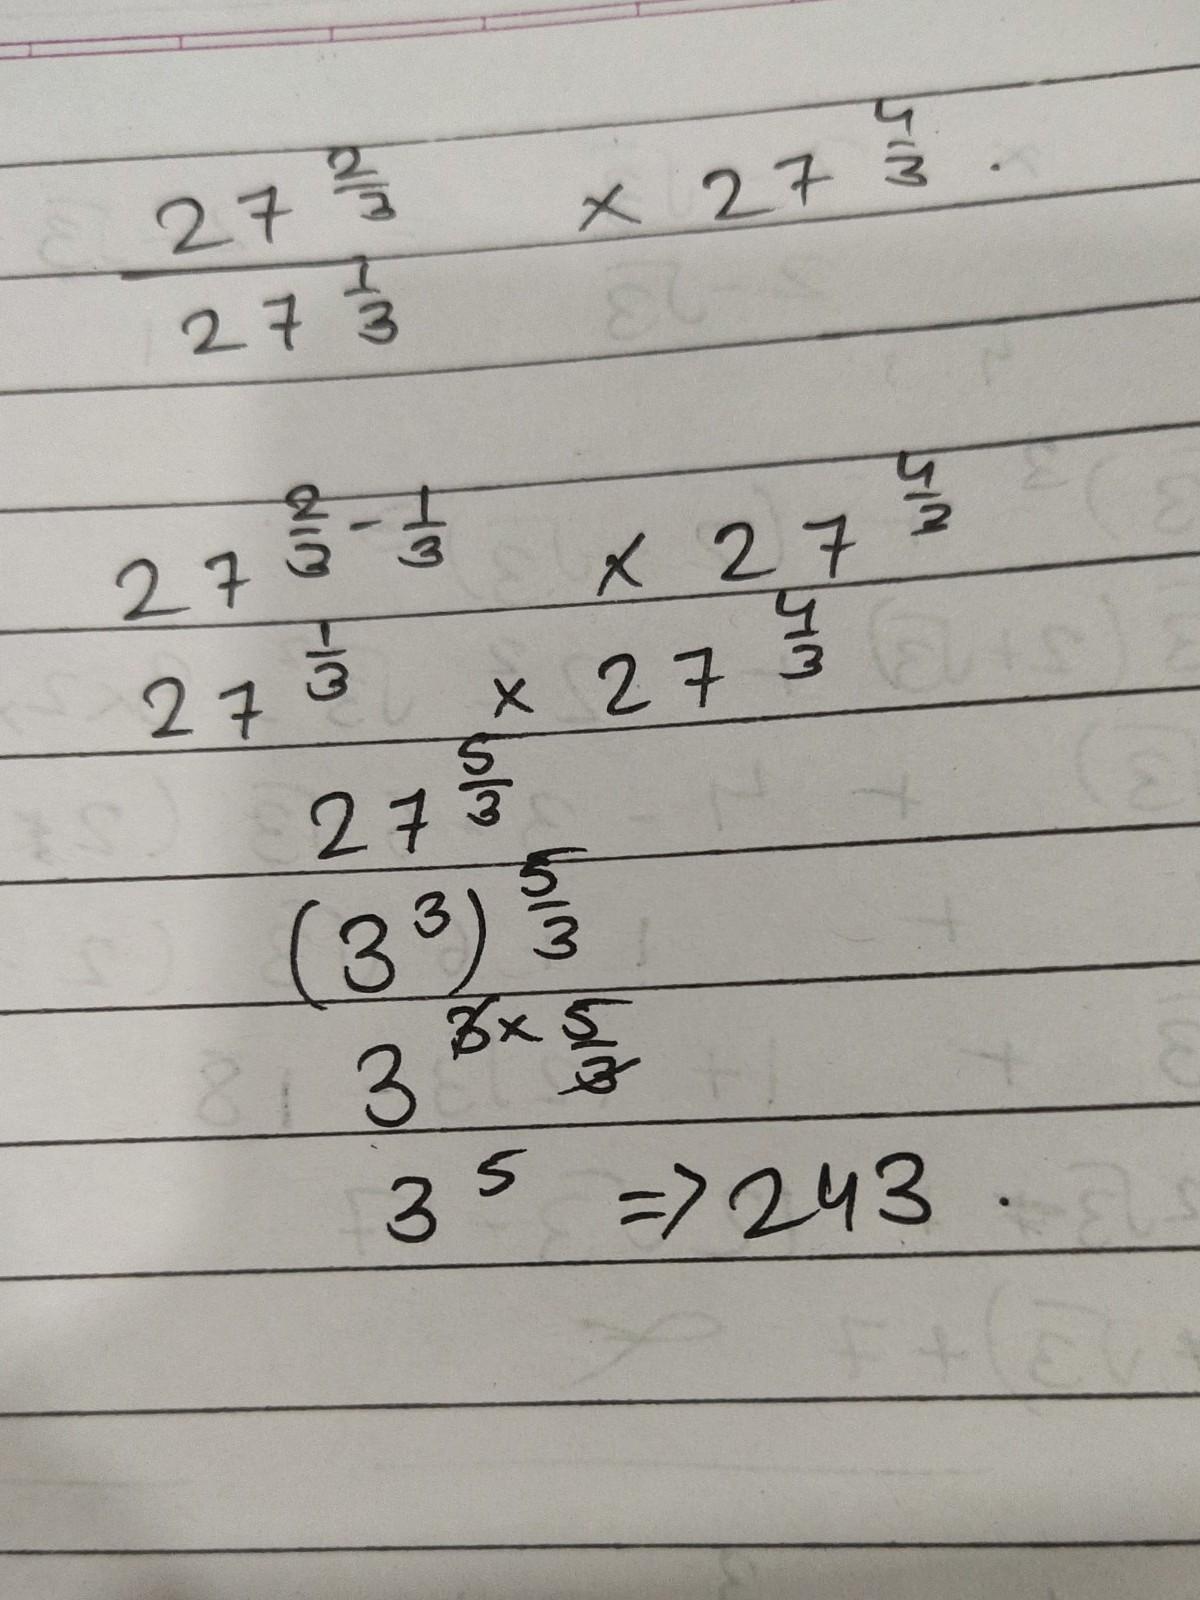 27^(2/3) / 27^(1/3) × 27^(4/3) .
27^(2/3 - 1/3) × 27^(4/3)
27^(1/3) × 27^(4/3)
27^(5/3)
(3^3)^(5/3)
3^(3 × 5/3)
3^5 => 243 .